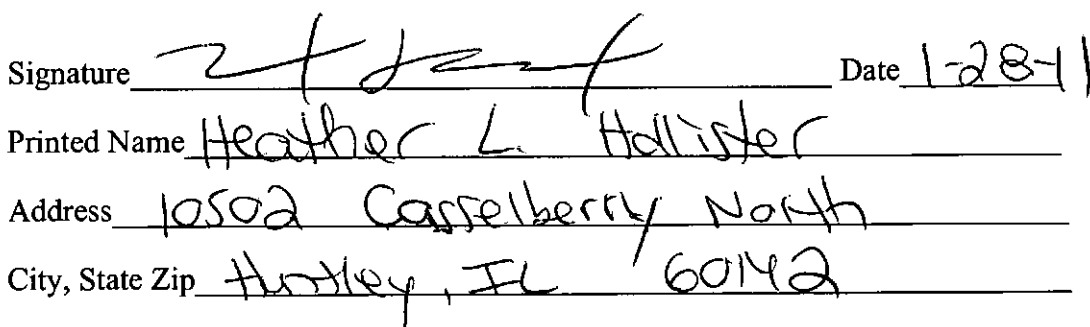 Signature Date 1-28-11
Printed Name Heather L. Hollister
Address 10502 Casselberry North
City, State Zip Huntley, IL 60142